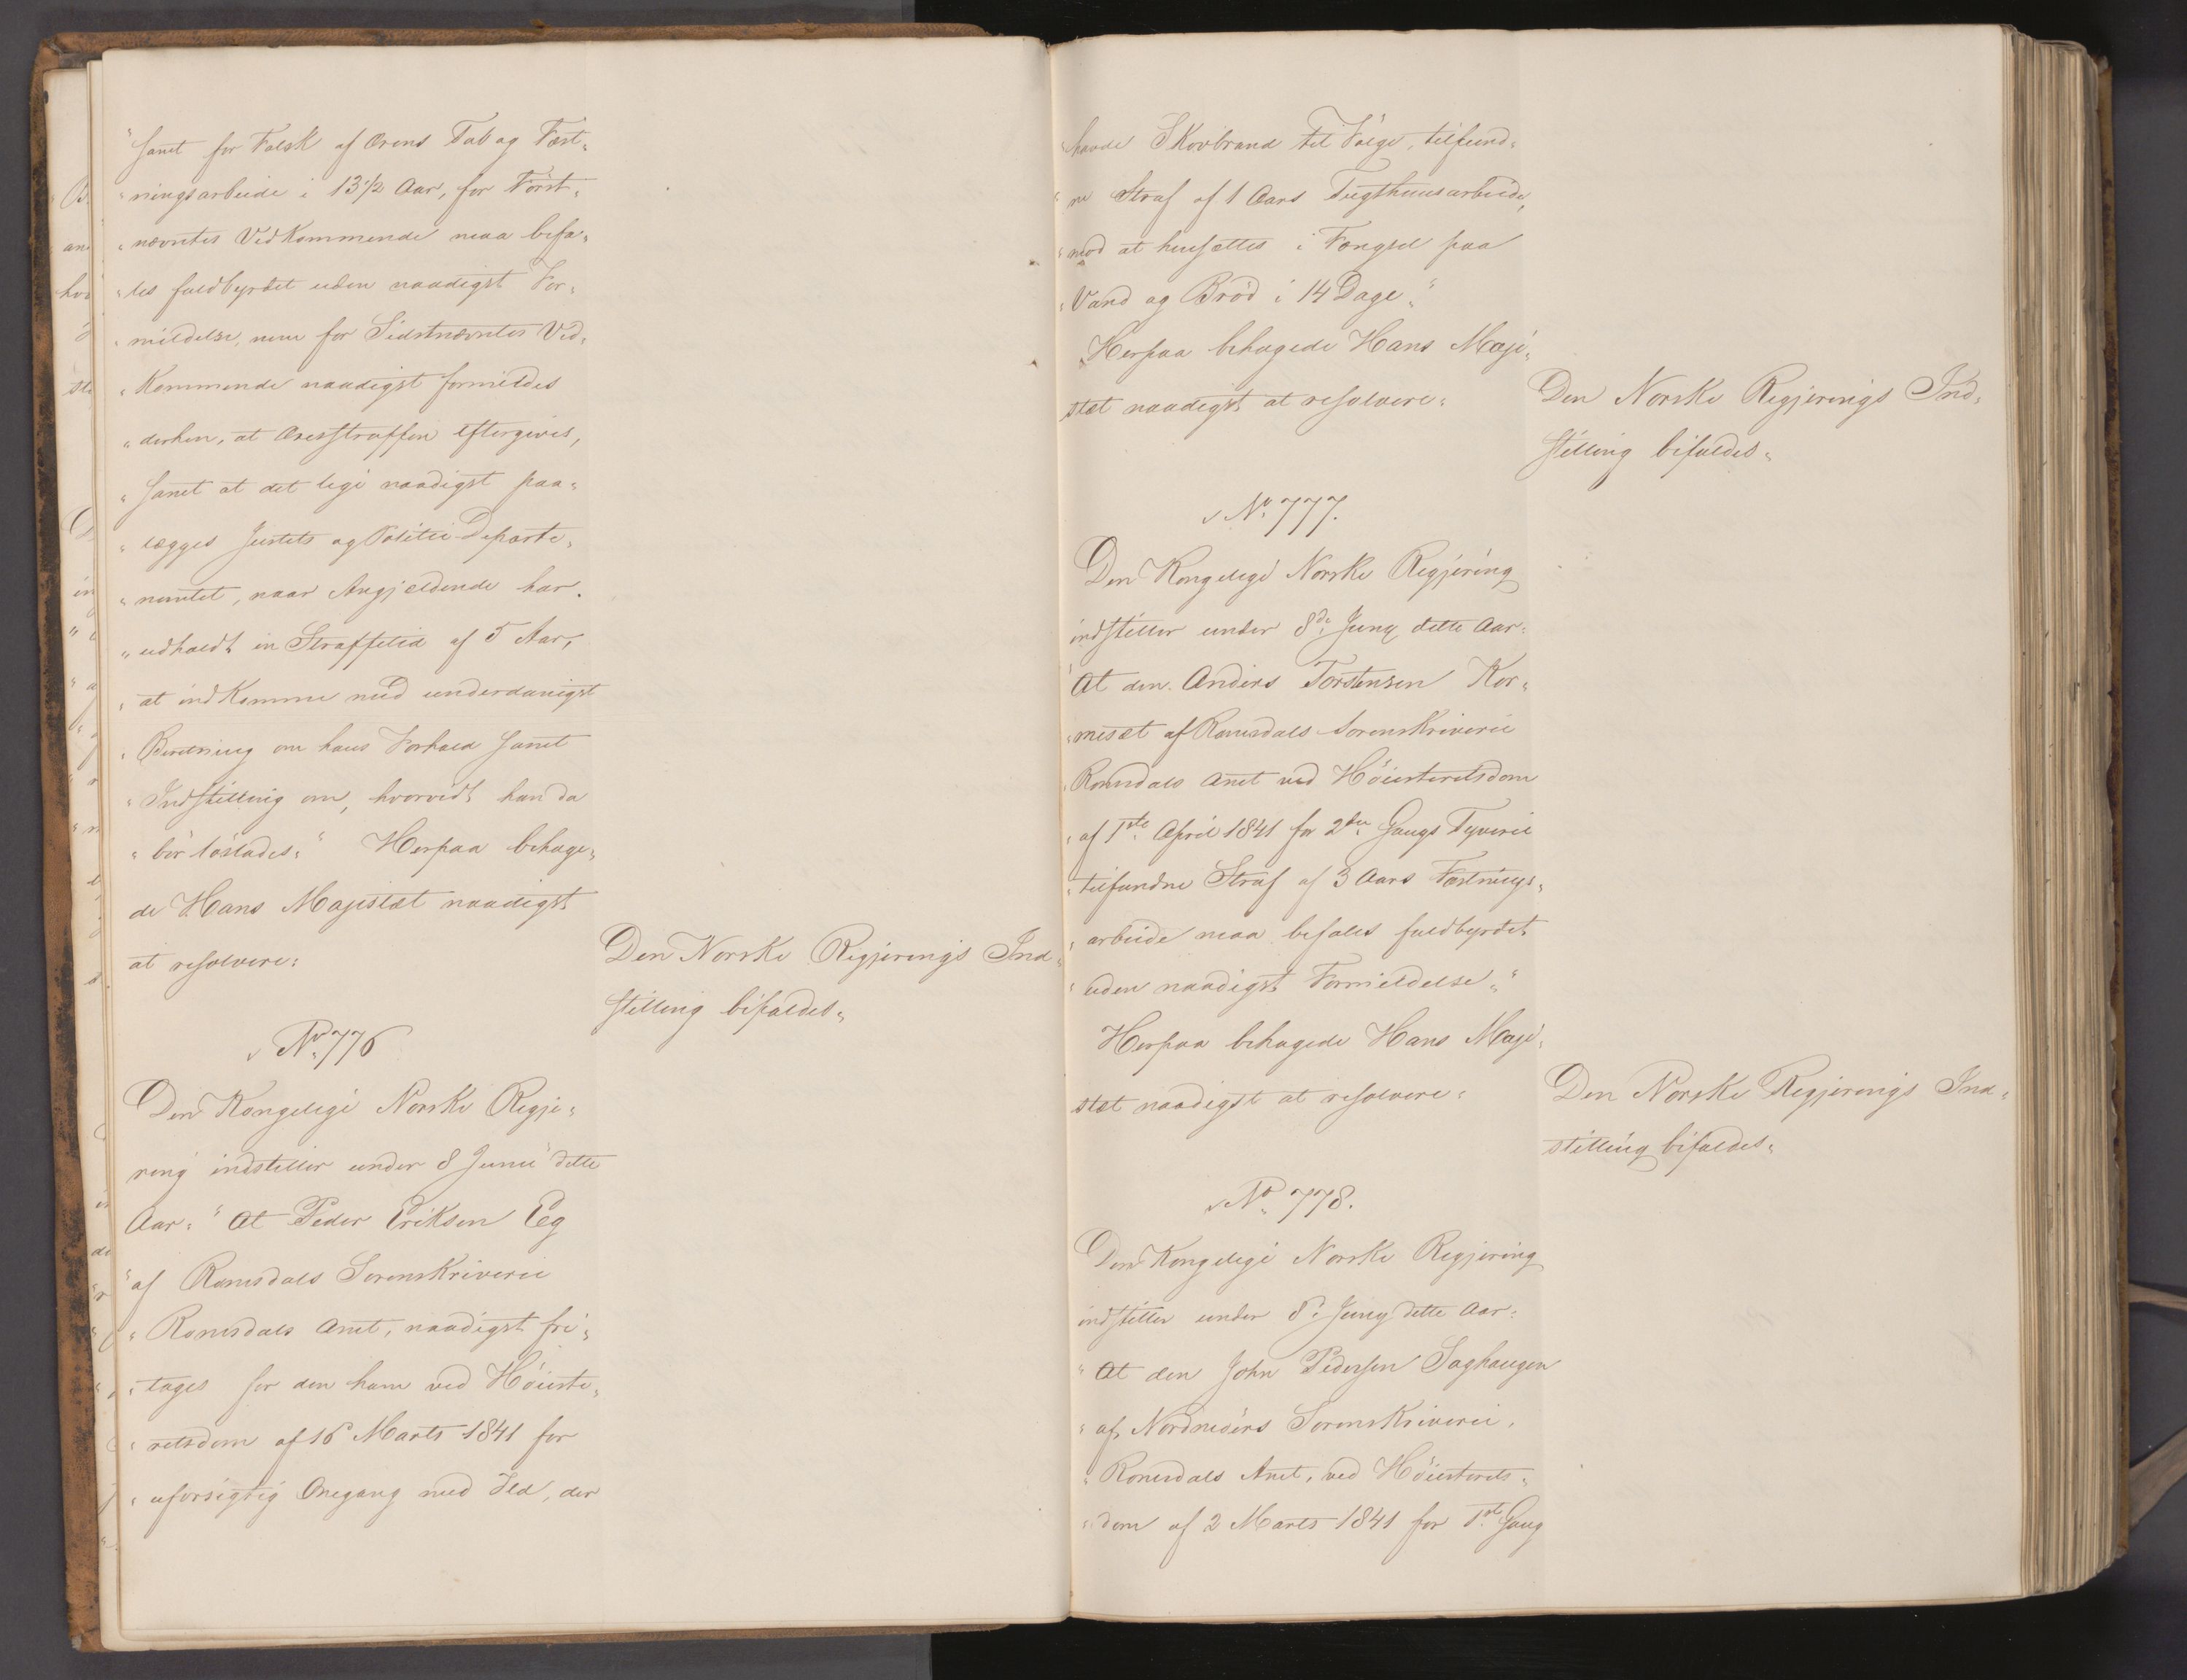 "samt for Falsk af Ærens Tab og Fæst„
"ningsarbeide i 13 1/2 Aar, for Først„
"nævntes Vedkommende maa befa„
"les fuldbyrdet uden naadigst For„
"mildelse, men for Sidstnævntes Ved„
"Kommende naadigst formildes
"derhen, at Æresstraffen eftergives,
"samt at det lige naadigst paa„
"lægges Justits og Politie-Departe„
"mentet, naar Angjældende har
"udholdt en Straffetid af 5 Aar,
"at indkomme med underdanigst
"Beretning om hans Forhold samt
"Indstilling om, hvorvidt han da
"bør løslades." Herpaa behage„
de Hans Majestæt naadigst
at resolvere:
Den Norske Regjerings Ind„
stilling bifaldes„
No 776
Den Kongelige Norske Regje„
ring indstiller under 8 Junii dette
Aar: "At Peder Eriksen Eeg
"af Romsdals Sorenskriverie
"Romsdals Amt, naadigst fri„
"tages for den ham ved Høieste„
"retsdom af 16 Marts 1841 for
"uforsigtig Omgang med Ild, der
"havde Skovbrand til Følge, tilfund„
"ne Straf af 1 Aars Tugthuusarbeide,
"mod at hensættes i Fængsel paa
"Vand og Brød i 14 Dage."
Herpaa behagede Hans Maje„
stæt naadigst at resolvere:
Den Norske Regjerings Ind„
stilling bifaldes„
No 777.
Den Kongelige Norske Regjering
indstiller under 8de Juny dette Aar:
"At den Anders Torstensen Kor„
"mesæt af Romsdals Sorenskriverie
"Romsdals Amt ved Høiesteretsdom
"af 1ste April 1841 for 2den Gangs Tyverie
"tilfundne Straf af 3 Aars Fæstnings„
"arbeide maa befales fuldbyrdet
"uden naadigst Formildelse„"
Herpaa behagede Hans Maje„
stæt naadigst at resolvere:
Den Norske Regjerings Ind„
stilling bifaldes„
No 778.
Den Kongelige Norske Regjering
indstiller under 8: Juny dette Aar:
"At den John Pedersen Saghaugen
"af Nordmørs Sorenskriverie,
"Romsdals Amt, ved Høiesterets„
"dom af 2 Marts 1841 for 1ste Gang